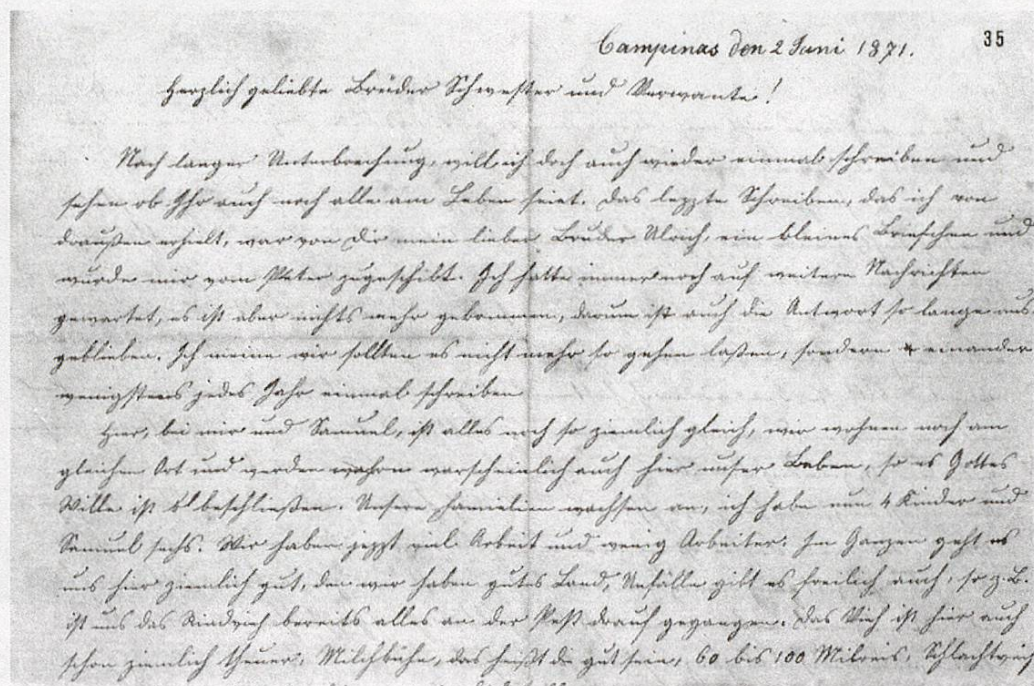 35
Campinas den 2 Juni 1871.
Herzlich geliebte Brüder Schwester und Verwante!
Nach langer Unterbrechung, will ich doch auch wieder einmal schreiben und
sehen ob Ihr auch noch alle am Leben seiet. Das lezzte Schreiben, das ich von
draußen erhielt, war von Dir mein lieber Bruder Ulrich, ein kleines Briefchen und
wurde mir vom Peter zugeschikt. Ich hatte immer noch auf weitere Nachrichten
gewartet, es ist aber nichts mehr gekommen, darum ist auch die Antwort so lange aus
geblieben. Ich meine wir sollten es nicht mehr so gehen laßen, sondern einander
wenigstens jedes Jahr einmal schreiben
Hier, bei mir und Samuel, ist alles noch so ziemlich gleich, wir wohnen noch am
gleichen Ort und werden warscheinlich auch hier unser Leben, so es Gottes
Wille ist beschließen. Unsere Familien wachsen an, ich habe nun 4 Kinder und
Samuel sechs. Wir haben jezzt viel Arbeit und wenig Arbeiter. Im Ganzen geht es
uns hier ziemlich gut, den wir haben gutes Land, Unfälle gibt es freilich auch, so z.B.
ist uns das Rindvieh bereits alles an der Pest drauf gegangen. Das Vieh ist hier auch
schon ziemlich theuer, Milchkühe, das heißt die gut sein, 60 bis 100 Milreis, Schlachtvieh